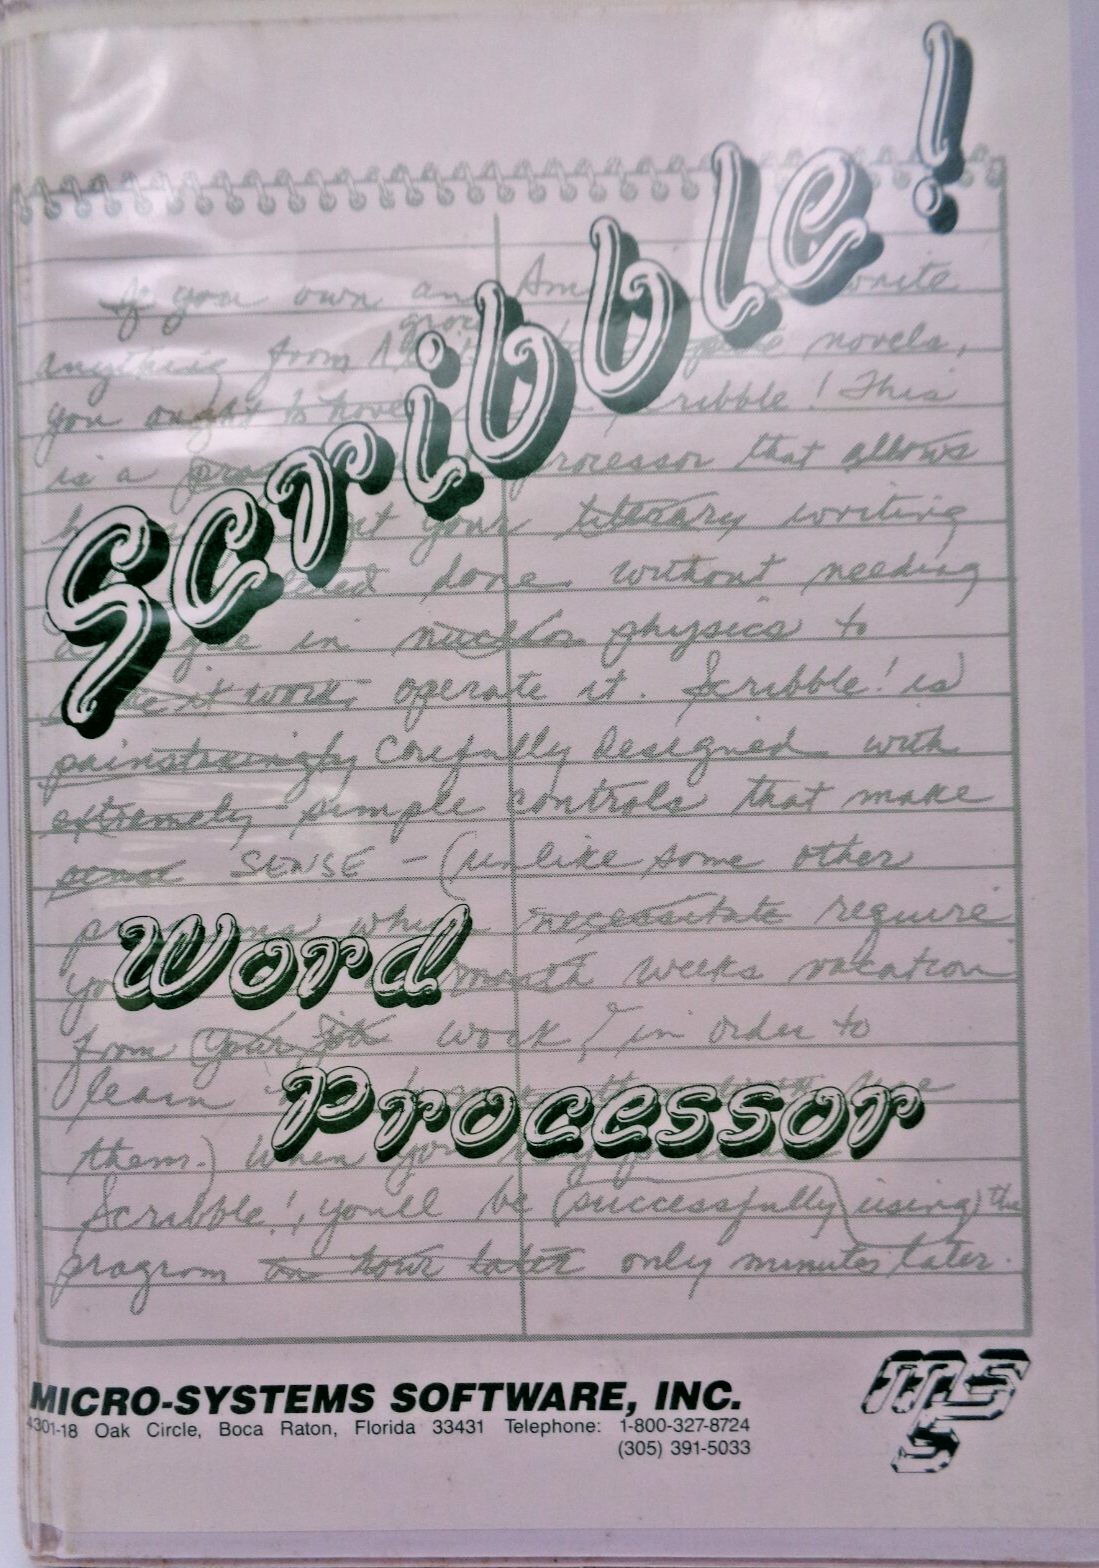 Scribble!
If you own an Am write
anything from novels,
you ought to have Scribble! This
is a processor that allows
your literary writing
done without needing
in nuclear physics to
work, operate it. Scribble! is
painstakingly carefully designed with
extremely simple controls that make
SENSE - (unlike some other
which necessitate require
month weeks vacation
from your job work, in order to
learn
them.) When you
Scribble!, you'll be (successfully) using) the
program an hour later only minutes later.
Word
Processor
MICRO-SYSTEMS SOFTWARE, INC.
4301-18 Oak Circle, Boca Raton, Florida 33431 Telephone: 1-800-327-8724
(305) 391-5033
mss